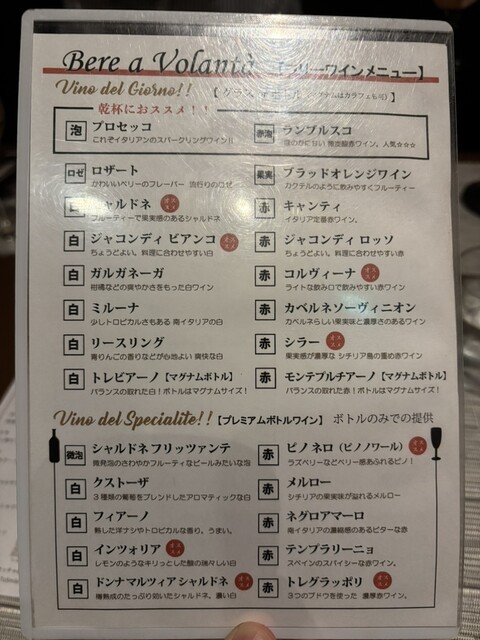 Bere a Volantà 【フリーワインメニュー】
Vino del Giorno!!
乾杯におススメ！！
泡 プロセッコ
これぞイタリアンのスパークリングワイン!!
赤泡 ランブルスコ
ロゼ ロザート
かわいいベリーのフレーバー 流行りのロゼ
果実 ブラッドオレンジワイン
カクテルのように飲みやすくフルーティー
白 シャルドネ オススメ
フルーティーで果実感のあるシャルドネ
赤 キャンティ
イタリア定番赤ワイン。
白 ジャコンディ ビアンコ オススメ
ちょうどよい。料理に合わせやすい白
赤 ジャコンディ ロッソ
ちょうどよい。料理に合わせやすい赤
白 ガルガネーガ
柑橘などの爽やかさをもった白ワイン
赤 コルヴィーナ オススメ
ライトな飲み口で飲みやすい赤ワイン
白 ミルーナ
少しトロピカルさもある 南イタリアの白
赤 カベルネソーヴィニオン
カベルネらしい果実味と濃厚さのあるワイン
白 リースリング
青りんごの香りなどが心地よい 爽快な白
赤 シラー オススメ
果実感が濃厚な シチリア島の重め赤ワイン
白 トレビアーノ【マグナムボトル】
バランスの取れた白！ボトルはマグナムサイズ！
赤 モンテプルチアーノ【マグナムボトル】
バランスの取れた赤！ボトルはマグナムサイズ！
Vino del Specialite!!【プレミアムボトルワイン】 ボトルのみでの提供
微泡 シャルドネフリッツァンテ
微発泡のさわやかフルーティなビールみたいな泡
赤 ピノ ネロ（ピノノワール） オススメ
ラズベリーなどベリー感あふれるピノ！
白 クストーザ
3種類の葡萄をブレンドしたアロマティックな白
赤 メルロー
シチリアの果実味が溢れるメルロー
白 フィアーノ
熟した洋ナシやトロピカルな香り。うまい。
赤 ネグロアマーロ
南イタリアの濃縮感のあるビターな赤
白 インツォリア オススメ
レモンのようなキリっとした酸の瑞々しい白
赤 テンプラリーニョ
スペインのスパイシーな赤ワイン。
白 ドンナマルツィアシャルドネ オススメ
樽熟成のたっぷり効いたシャルドネ。濃い白
赤 トレグラッポリ オススメ
3つのブドウを使った 濃厚赤ワイン。